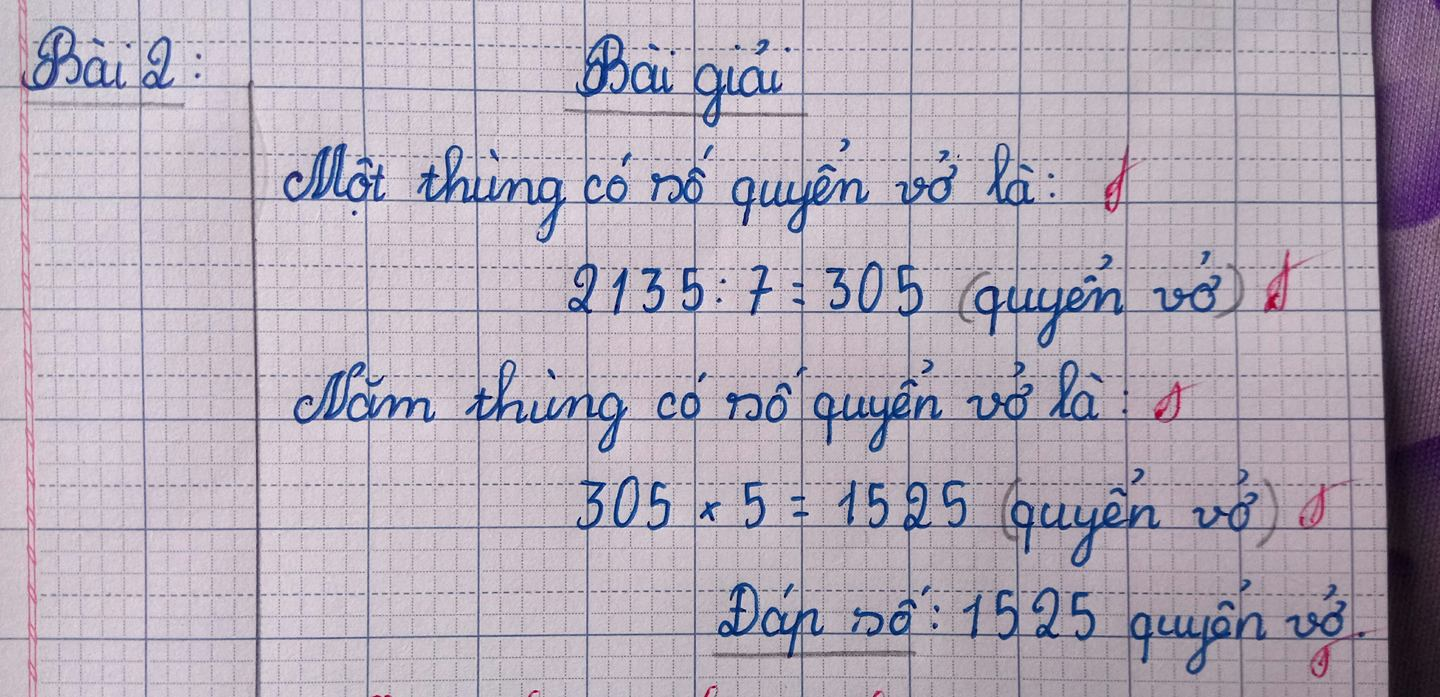 Bài 2: Bài giải
Một thùng có số quyển vở là:
2135 : 7 = 305 (quyển vở)
Năm thùng có số quyển vở là:
305 × 5 = 1525 (quyển vở)
Đáp số: 1525 quyển vở.